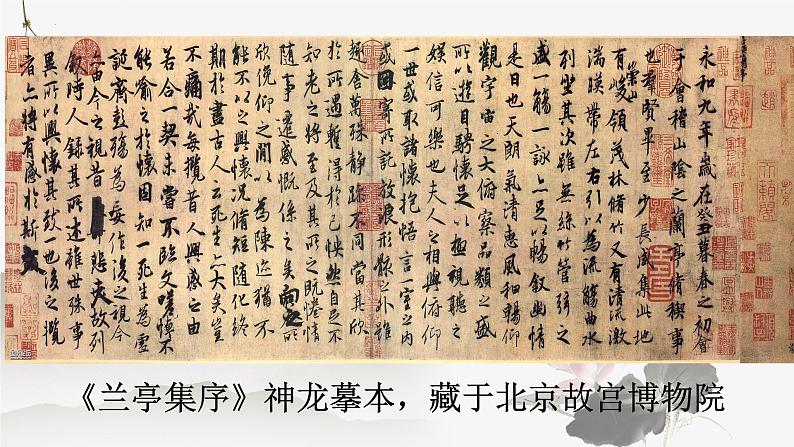 永和九年歲在癸丑暮春之初會
于會稽山陰之蘭亭脩稧事
也羣賢畢至少長咸集此地
有崇山峻領茂林脩竹又有清流激
湍暎帶左右引以為流觴曲水
列坐其次雖無絲竹管弦之
盛一觴一詠亦足以暢敘幽情
是日也天朗氣清惠風和暢仰
觀宇宙之大俯察品類之盛
所以遊目騁懷足以極視聽之
娛信可樂也夫人之相與俯仰
一世或取諸懷抱悟言一室之內
或因寄所託放浪形骸之外雖
趣舍萬殊靜躁不同當其欣
於所遇蹔得於己怏然自足不
知老之將至及其所之既惓情
隨事遷感慨係之矣向之所
欣俛仰之間以為陳迹猶不
能不以之興懷況脩短隨化終
期於盡古人云死生亦大矣豈
不痛哉每攬昔人興感之由
若合一契未嘗不臨文嗟悼不
能喻之於懷固知一死生為虛
誕齊彭殤為妄作後之視今
亦由今之視昔悲夫故列
敘時人錄其所述雖世殊事
異所以興懷其致一也後之攬
者亦將有感於斯文
《兰亭集序》神龙摹本，藏于北京故宫博物院